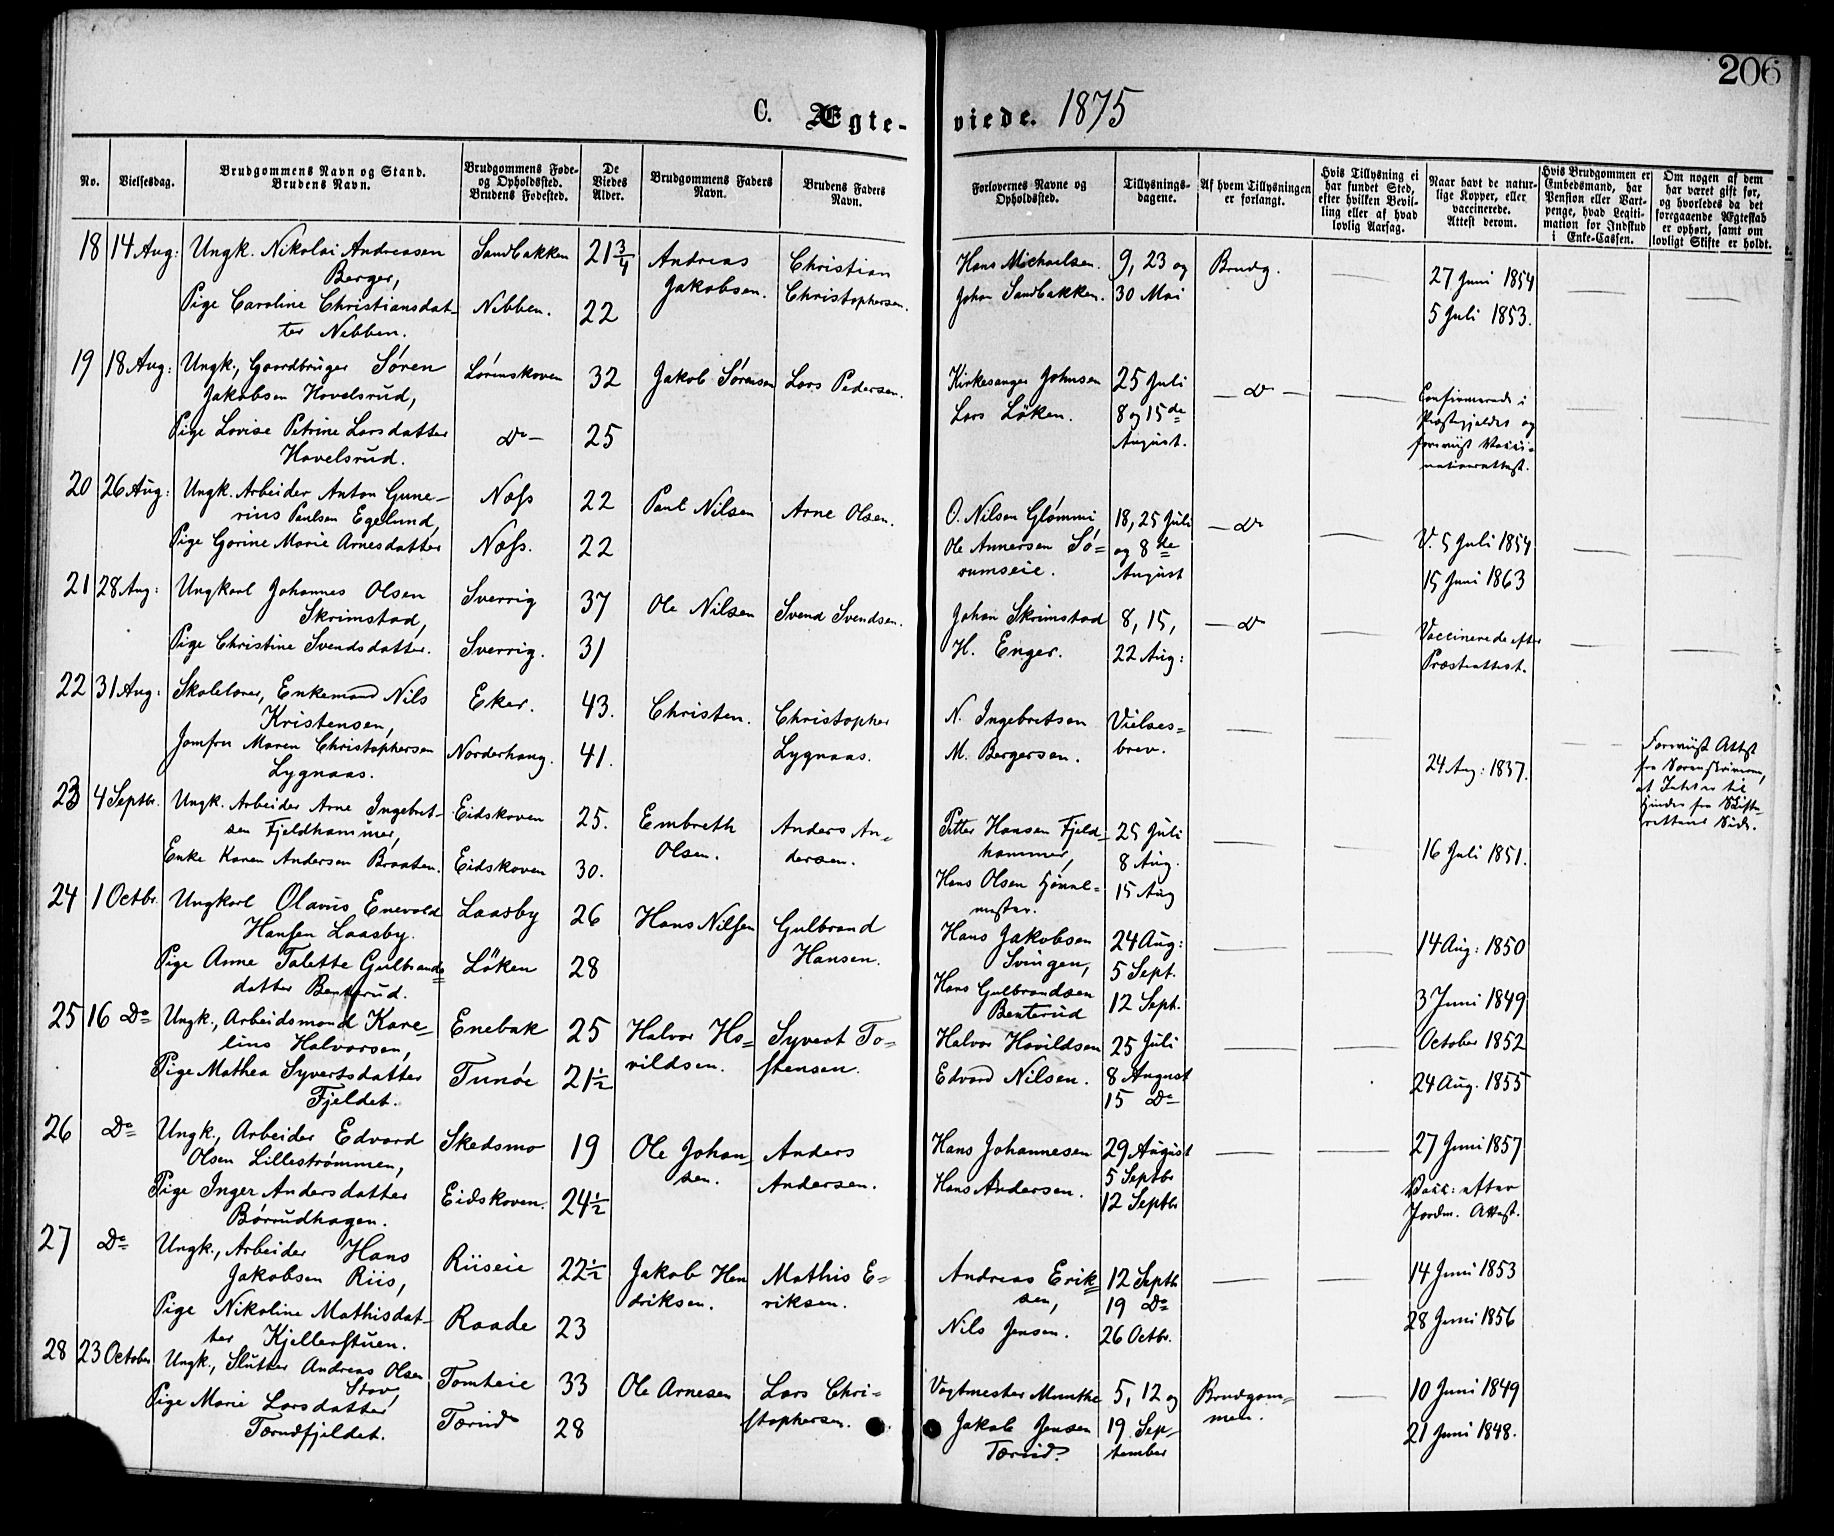 206
C. Ægte- viede. 1875
No.
Vielsesdag.
Brudgommens Navn og Stand.
Brudens Navn.
Brudgommens Føde-
og Opholdssted.
Brudens Fødested.
De
Viedes
Alder.
Brudgommens Faders
Navn.
Brudens Faders
Navn.
Forlovernes Navne og
Opholdssted.
Tillysnings-
dagene.
Af hvem Tillysningen
er forlangt.
Hvis Tillysning ei
har fundet Sted,
efter hvilken Bevil-
ling eller af hvad
lovlig Aarsag.
Naar havt de natur-
lige Kopper, eller
vaccinerede.
Attest derom.
Hvis Brudgommen er
Embedsmand, har
Pension eller Vart-
penge, hvad Legiti-
mation for Indskud
i Enke-Cassen.
Om nogen af dem
har været gift før,
og hvorledes da det
foregaaende Ægteskab
er ophørt, samt om
lovligt Skifte er holdt.
18 14 Aug: Ungk. Nikolai Andreasen Sandbakken 21 3/4 Andreas Christian Hans Michaelsen. 9, 23 og Brudg. — 27 Juni 1854 — —
Berger, Jakobsen. Christophersen. Johan Sandbakken. 30 Mai
Pige Caroline Christiansdat- Nebben. 22 5 Juli 1853.
ter Nebben.
19 18 Aug: Ungk., Gaardbruger Søren Lørenskoven 32 Jakob Sørensen Lars Pedersen. Kirkesanger Johnsen 25 Juli — Do — — Confirmerede i — —
Jakobsen Hovelsrud, Lars Løken. 8 og 15de Præstegjeldet og
Pige Lovise Petrine Larsdatter Do — 25 August. foreviist Vacci-
Hovelsrud. nationsattest.
20 26 Aug: Ungk. Arbeider Anton Gune- Næss 22 Paul Nilsen Arne Olsen. O. Nilsen Glømmi, 18, 25 Juli — Do — V. 5 Juli 1854 — —
rius Paulsen Egelund, Ole Annersen Sø- og 8de
Pige Gorine Marie Arnesdatter Næss. 22 rumseie. August 15 Juni 1863
21 28 Aug: Ungkarl Johannes Olsen Sverrig 37 Ole Nilsen Svend Svendsen. Johan Skrimstad 8, 15, — Do — Vaccinerede efter — —
Skrimstad, H. Enger. 22 Aug: Præsteattest.
Pige Christine Svendsdatter. Sverrig. 31
22 31 Aug: Skolelærer, Enkemand Nils Eker. 43. Christen. Christopher N. Ingebretsen Vielses- — — 24 Aug: 1837. — Foreviist Attest
Kristensen, Lygnaas. M. Bergersen. brev. fra Sorenskriveren,
Jomfru Maren Christophersen Norderhaug. 41. at Intet er til
Lygnaas. Hinder fra Skifte-
rettens Side.
23 4 Septbr. Ungk. Arbeider Arne Ingebret- Eidskoven 25. Embreth Anders An- Petter Hansen Fjeld- 25 Juli — — 16 Juli 1851.
sen Fjeldhammer, Olsen. dersen. hammer, 8 Aug.
Enke Karen Andersen Braaten. Eidskoven 30. Hans Olsen 15 Aug
24 1 Octbr. Ungkarl Olavus Enevold Laasby 26 Hans Nilsen Gulbrand Hans Jakobsen 24 Aug: — — 14 Aug: 1850
Hansen Laasby. Hansen. Svingen, 5 Sept.
Pige Anne Talette Gulbrands- Løken 28 Hans Gulbrandsen 12 Sept. 3 Juni 1849
datter Benterud. Benterud
25 16 Do Ungk., Arbeidsmand Kare- Enebak 25 Halvor Ho- Syvert To- Halvor Hovildsen 25 Juli — — October 1852
lius Halvorsen, vildsen. stensen. Edvard Nilsen. 8 August
Pige Mathea Syvertsdatter Tunøe 21 1/2 15 Do 24 Aug. 1855
Fjeldet.
26 Do Ungk., Arbeider Edvard Skedsmo 19 Ole Johan- Anders Hans Johannesen 29 August — — 27 Juni 1857
Olsen Lillestrømmen, sen. Andersen. Hans Andersen. 5 Septbr
Pige Inger Andersdatter Eidskoven. 24 1/2 12 Septbr Vacc: efter
Børrudhagen. Jordm. Attest.
27 Do Ungk., Arbeider Hans Riiseie 22 1/2 Jakob Hen Mathis E- Andreas Erik- 12 Septb — — 14 Juni 1853
Jakobsen Riis, driksen. riksen. sen, 19 Do
Pige Nikoline Mathisdat- Raade 23 Nils Jensen. 26 Octbr. 28 Juni 1856
ter Kjellerstuen.
28 23 October Ungk., Slutter Andreas Olsen Tomteie 33 Ole Arnesen Lars Chri- Vogtmester Munthe 5, 12 og Brudgom- — 10 Juni 1849
Stov, stophersen. Jakob Jensen 19 Sep- men.
Pige Marie Larsdatter Tærud 28 Tærud. tember 21 Juni 1848.
Tærudfjeldet.